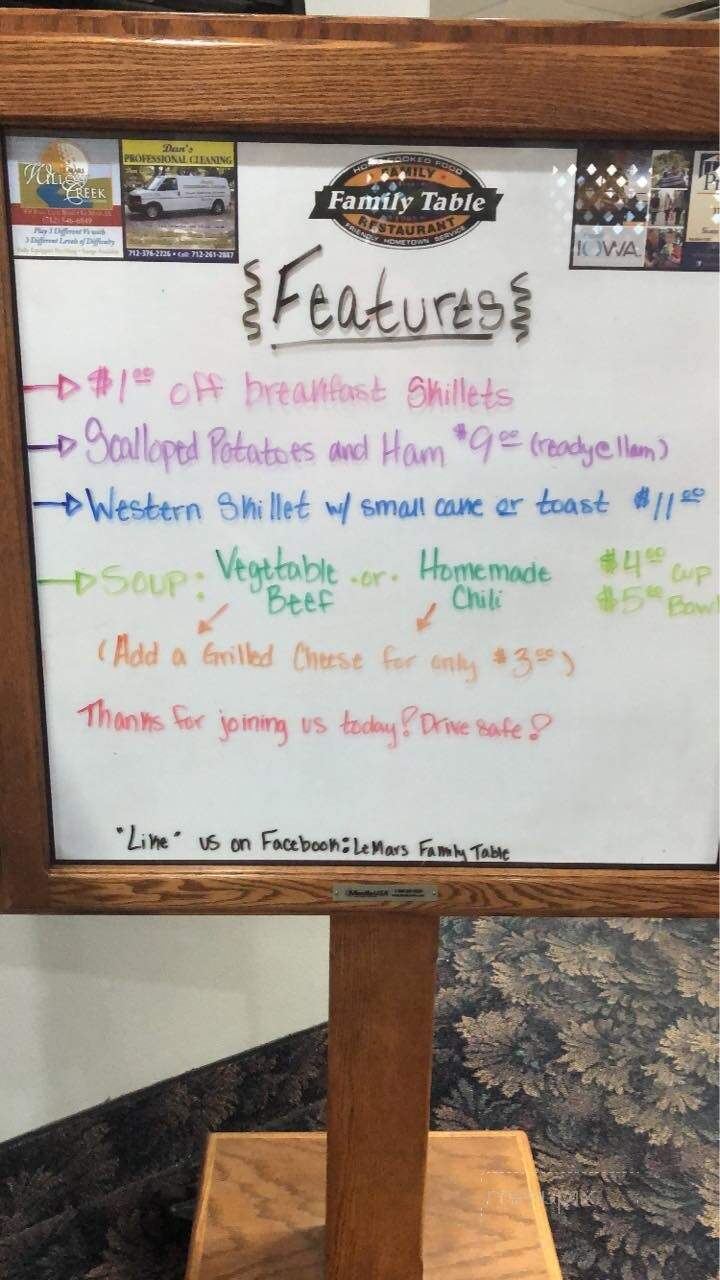 Willow Creek
(712) 546-6849
Play 3 Different 9's with
3 Different Levels of Difficulty
Dan's
PROFESSIONAL CLEANING
712-376-2726 • Cell: 712-261-2887
HOME COOKED FOOD
FAMILY
Family Table
RESTAURANT
FRIENDLY HOMETOWN SERVICE
IOWA
Features
$1.00 off breakfast Skillets
Scalloped Potatoes and Ham $9.00 (ready @ 11am)
Western Skillet w/ small cake or toast $11.00
Soup: Vegetable Beef -or- Homemade Chili $4.00 Cup
$5.00 Bowl
(Add a Grilled Cheese for only $3.00)
Thanks for joining us today! Drive safe!
"Like" us on Facebook: LeMars Family Table